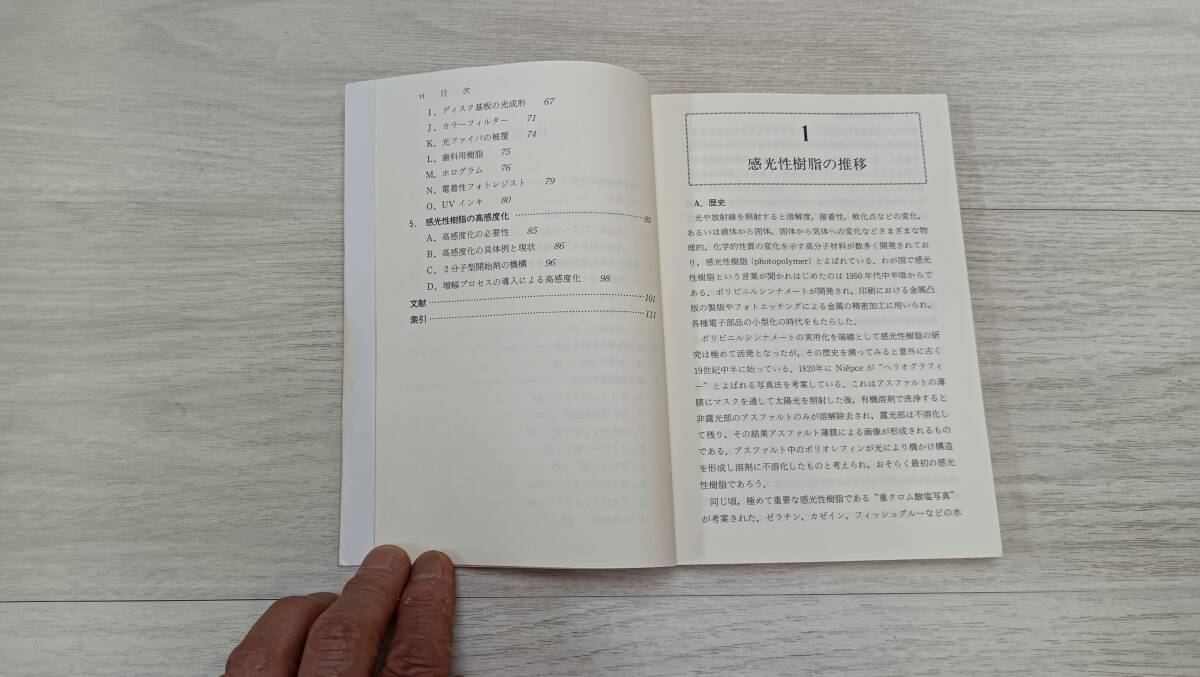 vi 目 次
I. ディスク基板の光成形 67
J. カラーフィルター 71
K. 光ファイバの被覆 74
L. 歯科用樹脂 75
M. ホログラム 76
N. 電着性フォトレジスト 79
O. UVインキ 80
5. 感光性樹脂の高感度化 85
A. 高感度化の必要性 85
B. 高感度化の具体例と現状 86
C. 2分子型開始剤の機構 96
D. 増幅プロセスの導入による高感度化 98
文献 101
索引 111
1
感光性樹脂の推移
A. 歴史
光や放射線を照射すると溶解度，接着性，軟化点などの変化，
あるいは液体から固体，固体から気体への変化などさまざまな物
理的，化学的性質の変化を示す高分子材料が数多く開発されてお
り，感光性樹脂（photopolymer）とよばれている．わが国で感光
性樹脂という言葉が聞かれはじめたのは1950年代中半頃からで
ある．ポリビニルシンナメートが開発され，印刷における金属凸
版の製版やフォトエッチングによる金属の精密加工に用いられ，
各種電子部品の小型化の時代をもたらした．
ポリビニルシンナメートの実用化を端緒として感光性樹脂の研
究は極めて活発となったが，その歴史を溯ってみると意外に古く
19世紀中半に始っている．1820年にNiêpceが“ヘリオグラフィ
ー”とよばれる写真法を考案している．これはアスファルトの薄
膜にマスクを通して太陽光を照射した後，有機溶剤で洗浄すると
非露光部のアスファルトのみが溶解除去され，露光部は不溶化し
て残り，その結果アスファルト薄膜による画像が形成されるもの
である．アスファルト中のポリオレフィンが光により橋かけ構造
を形成し溶剤に不溶化したものと考えられ，おそらく最初の感光
性樹脂であろう．
同じ頃，極めて重要な感光性樹脂である“重クロム酸塩写真”
が考案された．ゼラチン，カゼイン，フィッシュグルーなどの水